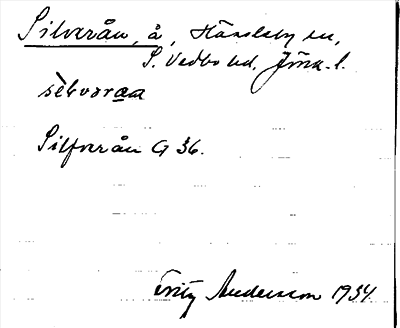 Silverån, å, Hässleby sn,
S. Vedbo hd, Jönk. l.
sèlvøraa
Silfverån G 36.
Fritz Andersson 1934.